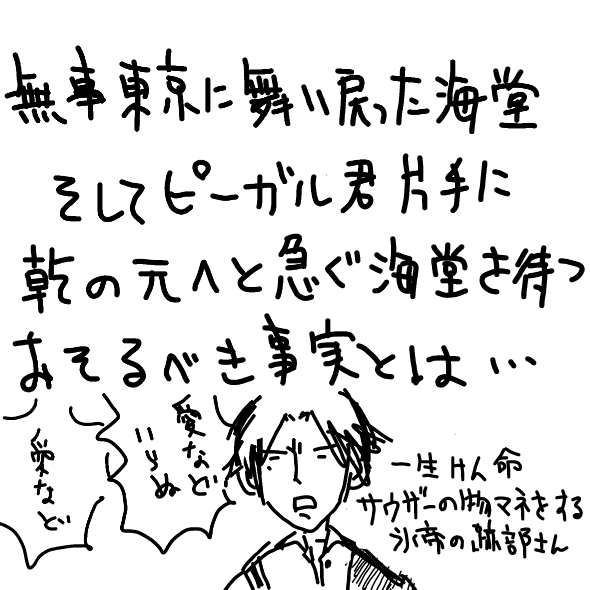 無事東京に舞い戻った海堂
そしてピーガル君片手に
乾の元へと急ぐ海堂を待つ
おそるべき事実とは…
愛など
いらぬ
愛など
一生けん命
サウザーの物マネをする
氷帝の跡部さん